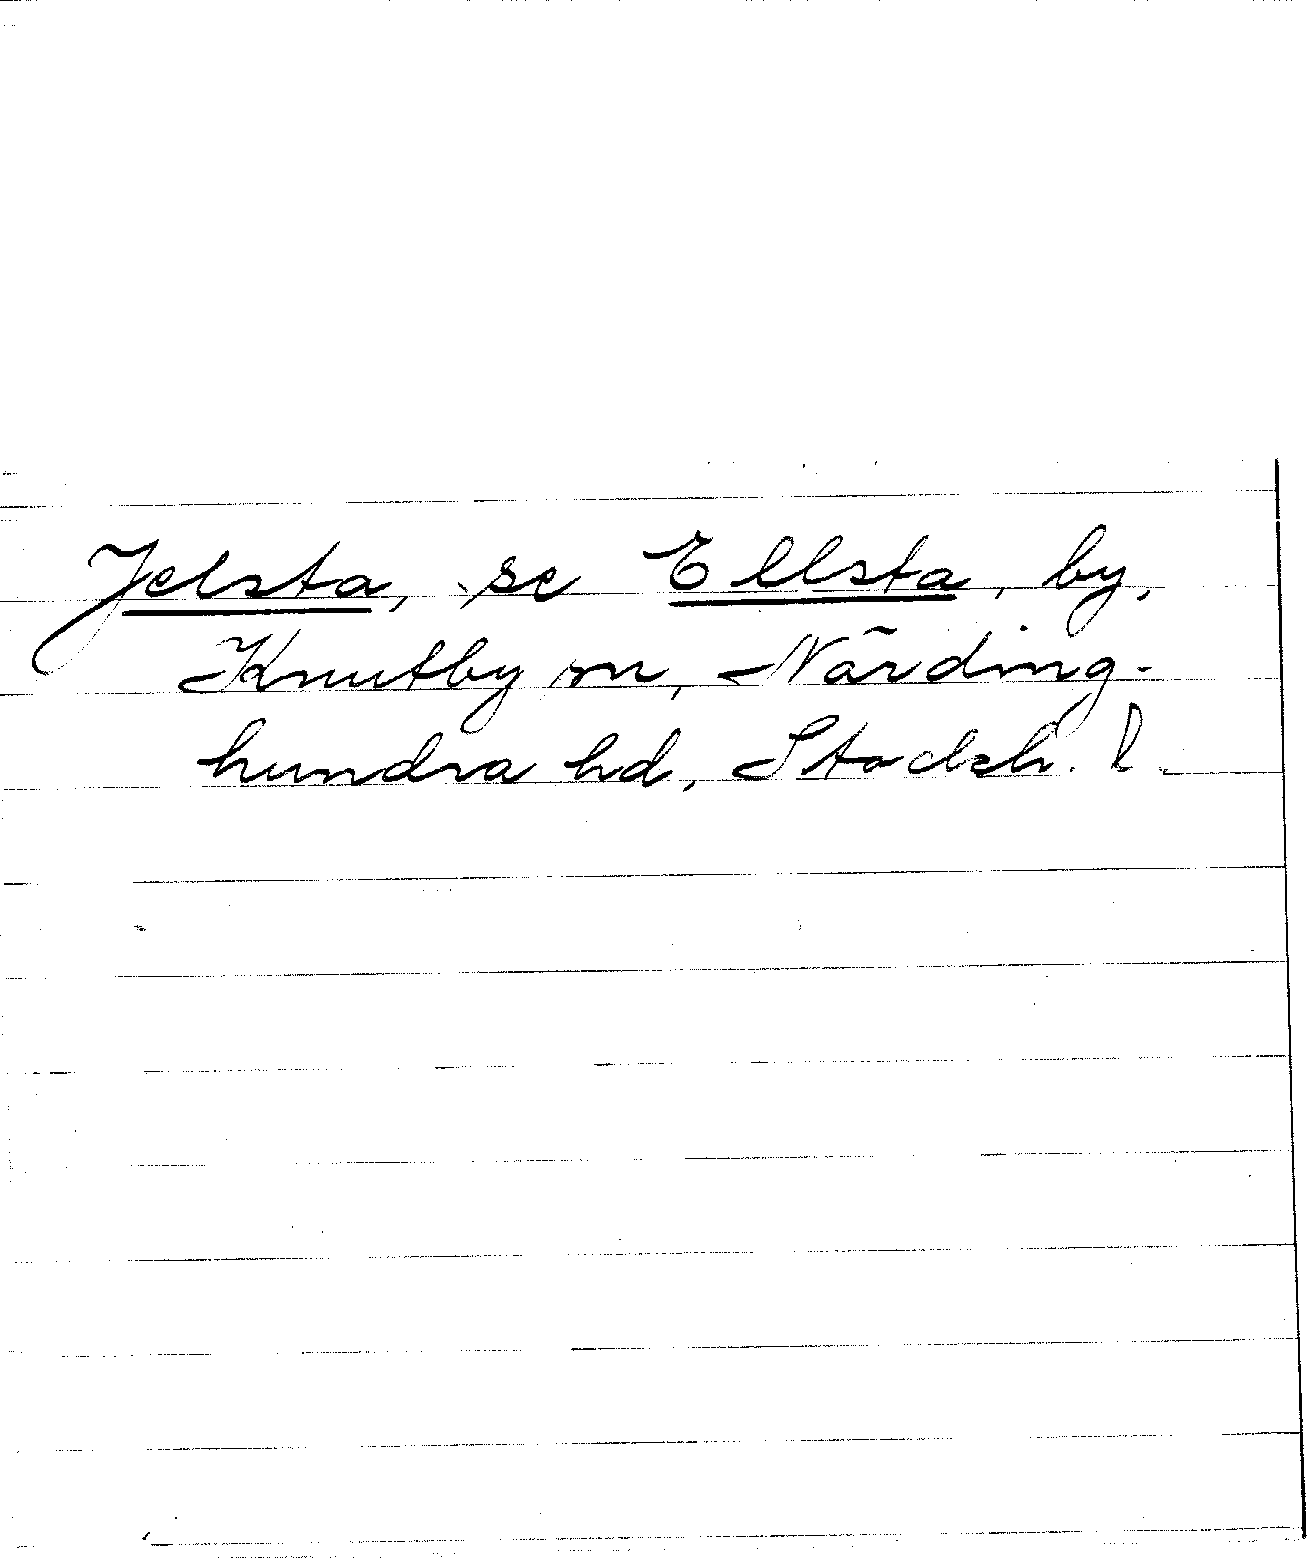 Jelsta, se Ellsta, by,
Knutby sn, Närding-
hundra hd, Stockh. l.